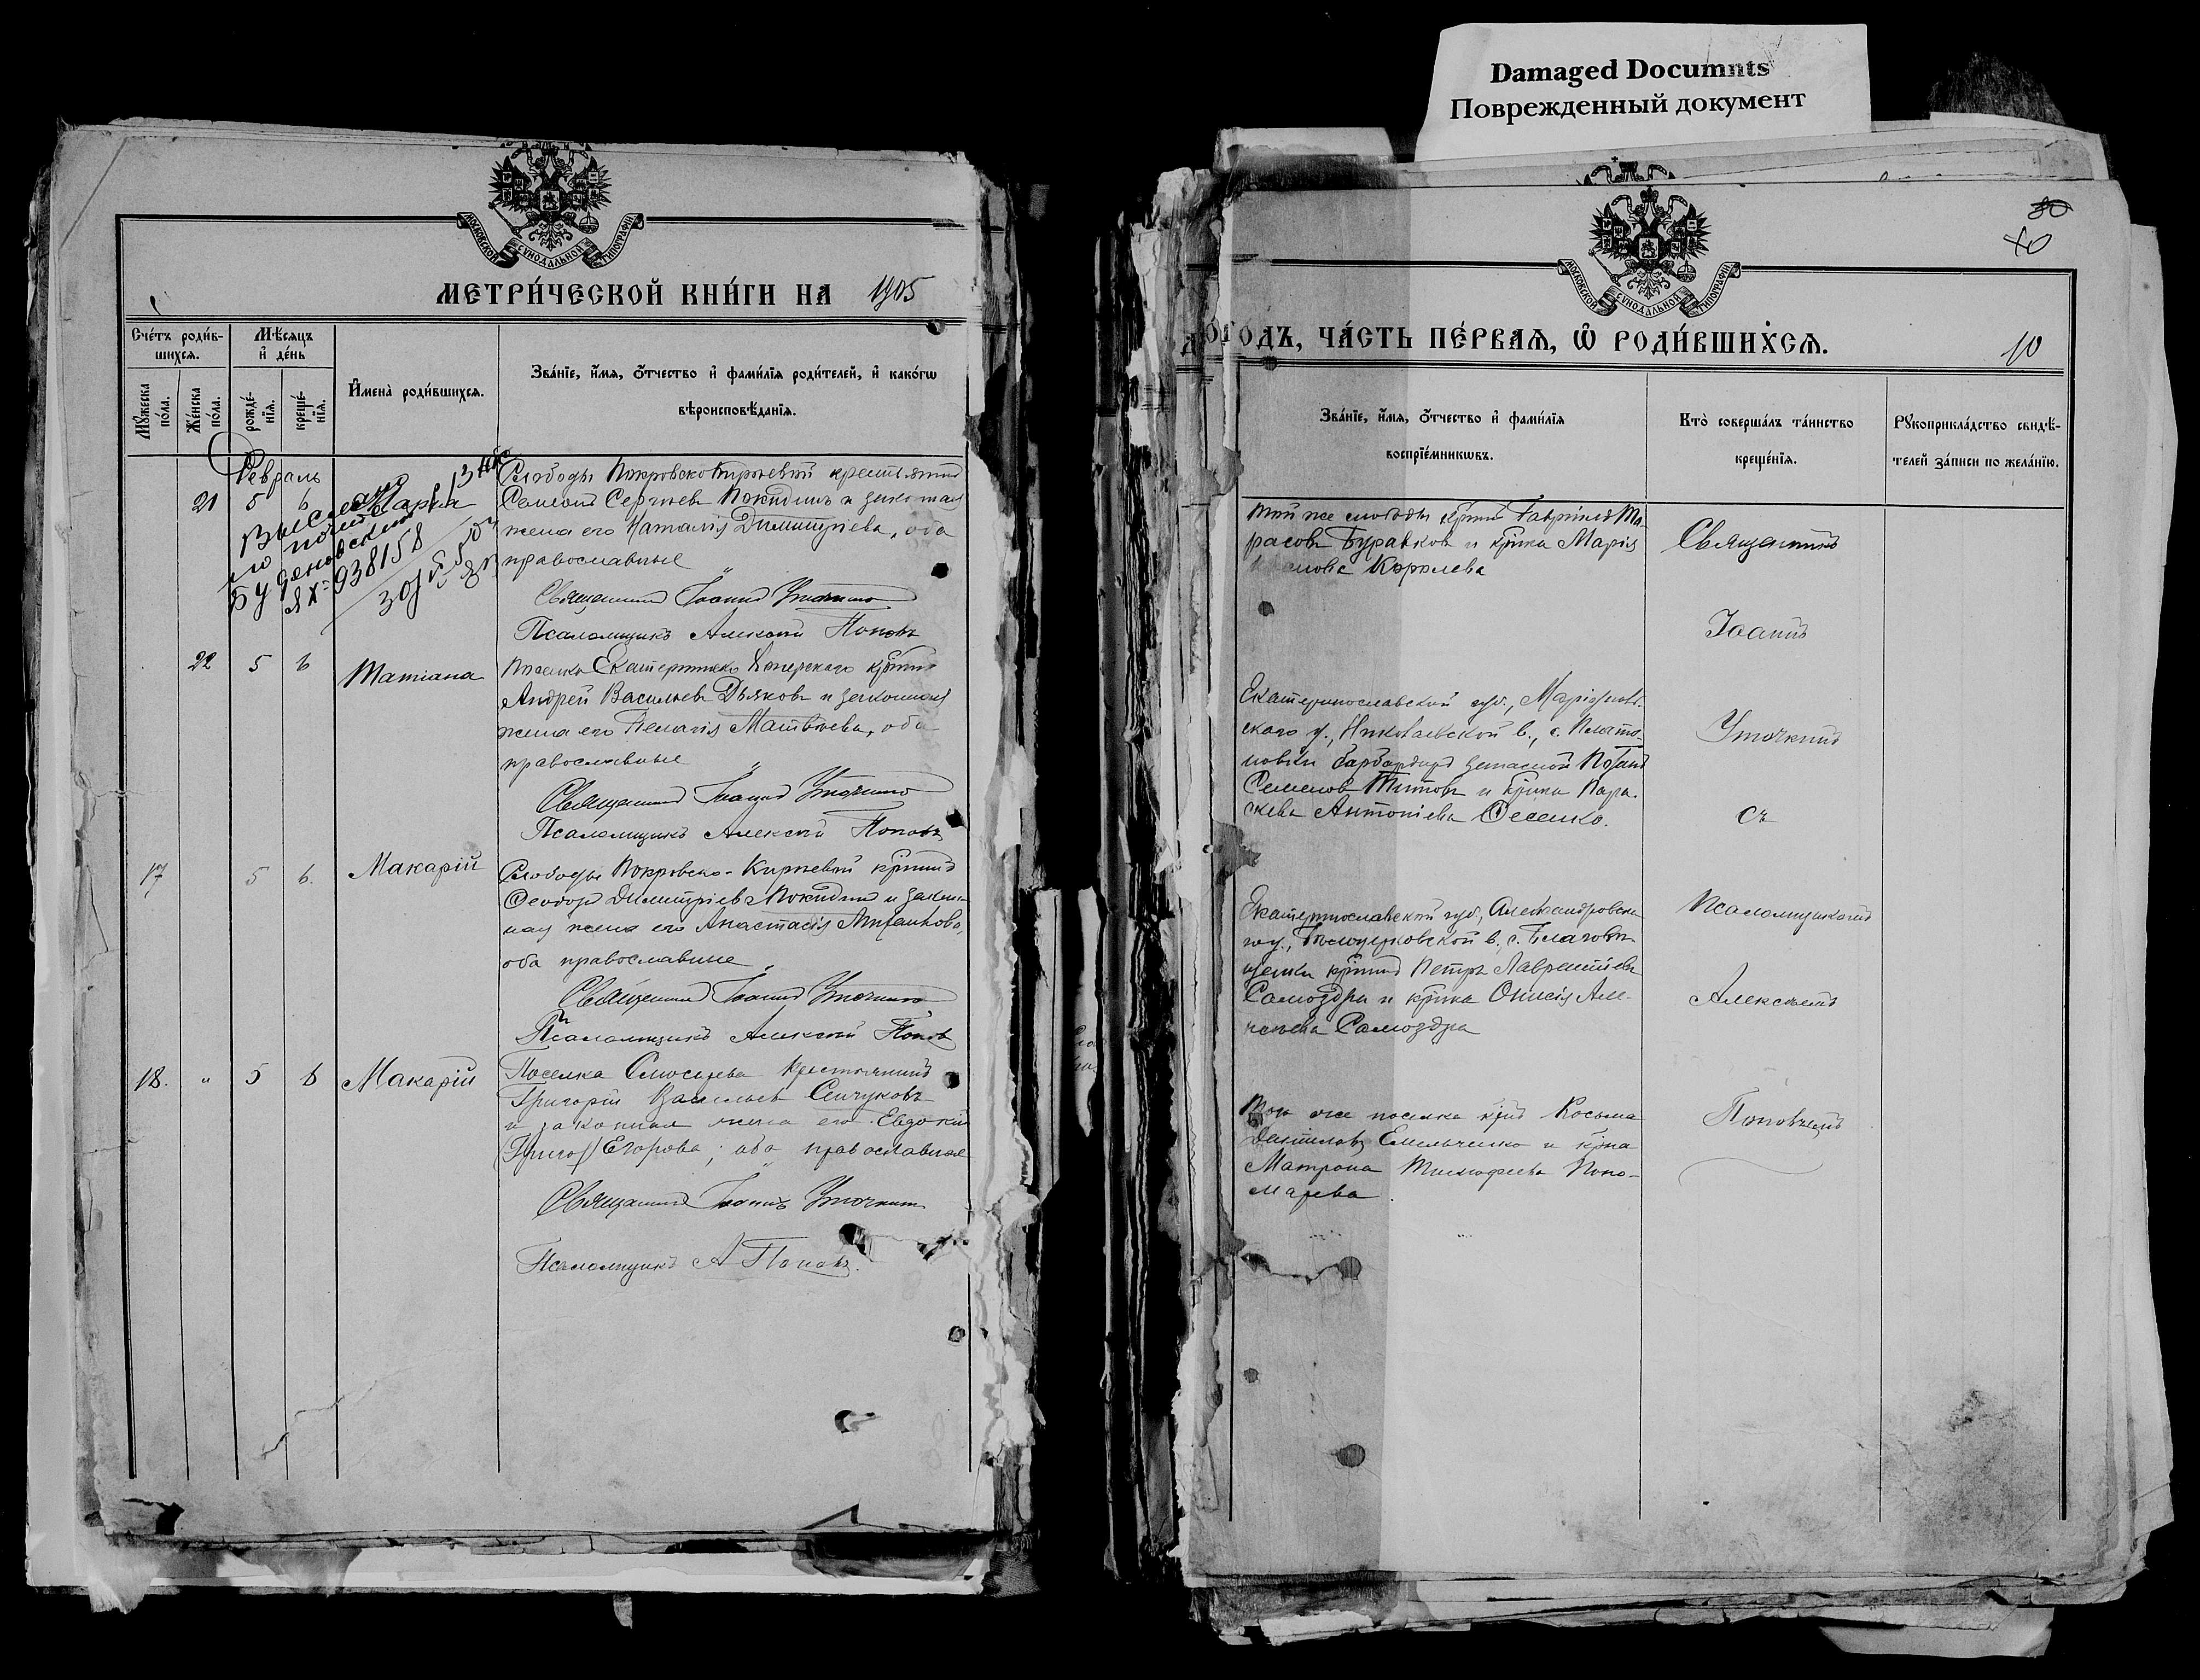 Damaged Documnts
Поврежденный документ
МОСКОВСКОЙ СѴНОДАЛЬНОЙ ТИПОГРАФІИ
МЕТРИ́ЧЕСКОЙ КНИ́ГИ НА 1905
Сче́тъ роди́в-
шихся.
Мѣ́сяцъ
и҆ де́нь
Мꙋ́жеска
по́ла.
Же́нска
по́ла.
рожде́-
нїя.
креще́-
нїя.
И҆мена̀ роди́вшихся.
Зва́нїе, и҆́мя, ѻ҆́тчество и҆ фами́лїя роди́телей, и҆ како́гѡ
вѣроисповѣ́данїя.
Февраль
21 5 6 Марія
Выслано
ЯХ-938158
Слободы Покровско Кирѣевой крестьянинъ
Сергіевъ Покидинъ и законная
жена его Наталія Димитріева, оба
православные
Священникъ Іоаннъ Уточкинъ
Псаломщикъ Алексѣй Поповъ
22 5 6 Татіана
Поселка
Андрей Васильевъ Дьяковъ и законная
жена его Пелагія Матвѣева, оба
православные
Священникъ Іоаннъ Уточкинъ
Псаломщикъ Алексѣй Поповъ
17 5 6. Макарій
Слободы Покровско-Кирѣевой крнинъ
Ѳеодоръ Димитріевъ Покидинъ и закон-
ная жена его Анастасія
оба православные
Священникъ Іоаннъ Уточкинъ
Псаломщикъ Алексѣй Поповъ
18. " 5 6 Макарій
Поселка крестьянинъ
Григорій Васильевъ
и законная жена его Евдокія
(Григор) Егорова; оба православные
Священникъ Іоаннъ Уточкинъ
Псаломщикъ А Поповъ.
МОСКОВСКОЙ СѴНОДАЛЬНОЙ ТИПОГРАФІИ
80
40
ГО́ДЪ, ЧА́СТЬ ПЕ́РВАЯ, Ѡ҆ РОДИ́ВШИХСЯ.
10
Зва́нїе, и҆́мя, ѻ҆́тчество и҆ фами́лїя
воспрїе́мникѡвъ.
Кто̀ соверша́лъ та́инство
креще́нїя.
Рꙋкоприкла́дство свидѣ́-
телей за́писи по жела́нїю.
Той же слободы крнинъ Гавріилъ Та-
расовъ Бураковъ и крнка Марія
Королева
Священникъ
Іоаннъ
Екатеринославской губ., Маріуполь-
скаго у., Николаевской в., с. Плато-
новки бомбардиръ запасной
Семеновъ Титовъ и крнка Пара-
скева Антоніева
Уточкинъ
съ
Екатеринославской губ., Александровска-
го у., в. с. Благовѣ-
щенки крнинъ Петръ Лаврентіевъ
Самоздра и крнка Онисія Але-
ксѣева Самоздра
Псаломщикомъ
Алексѣемъ
Того же поселка крнинъ Косьма
Даниловъ Емельченко и крнка
Матрона Тимофеева Поно-
марева
Поповымъ